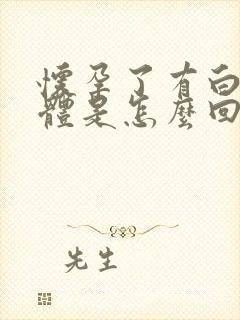 懷孕了有白
體是怎麼回
先生